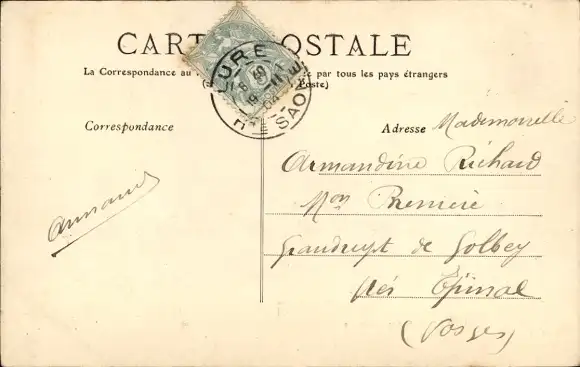 CARTE POSTALE
La Correspondance au par tous les pays étrangers
Poste)
LURE
Hte SAONE
Correspondance
Adresse Mademoiselle
Armandine Richard
Mon Première
Grandrupt de Golbey
près Épinal
(Vosges)
Armand